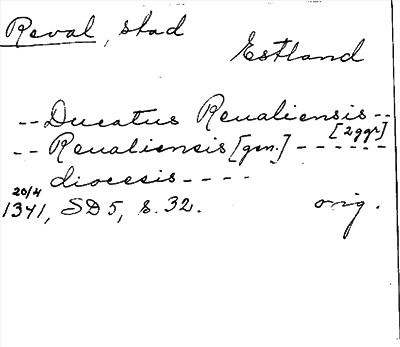 Reval, stad
Estland
-- Ducatus Reualiensis --
-- Reualiensis [gen.] ------ [2 ggr]
diocesis ----
20/4
1341, SD 5, s. 32. orig.